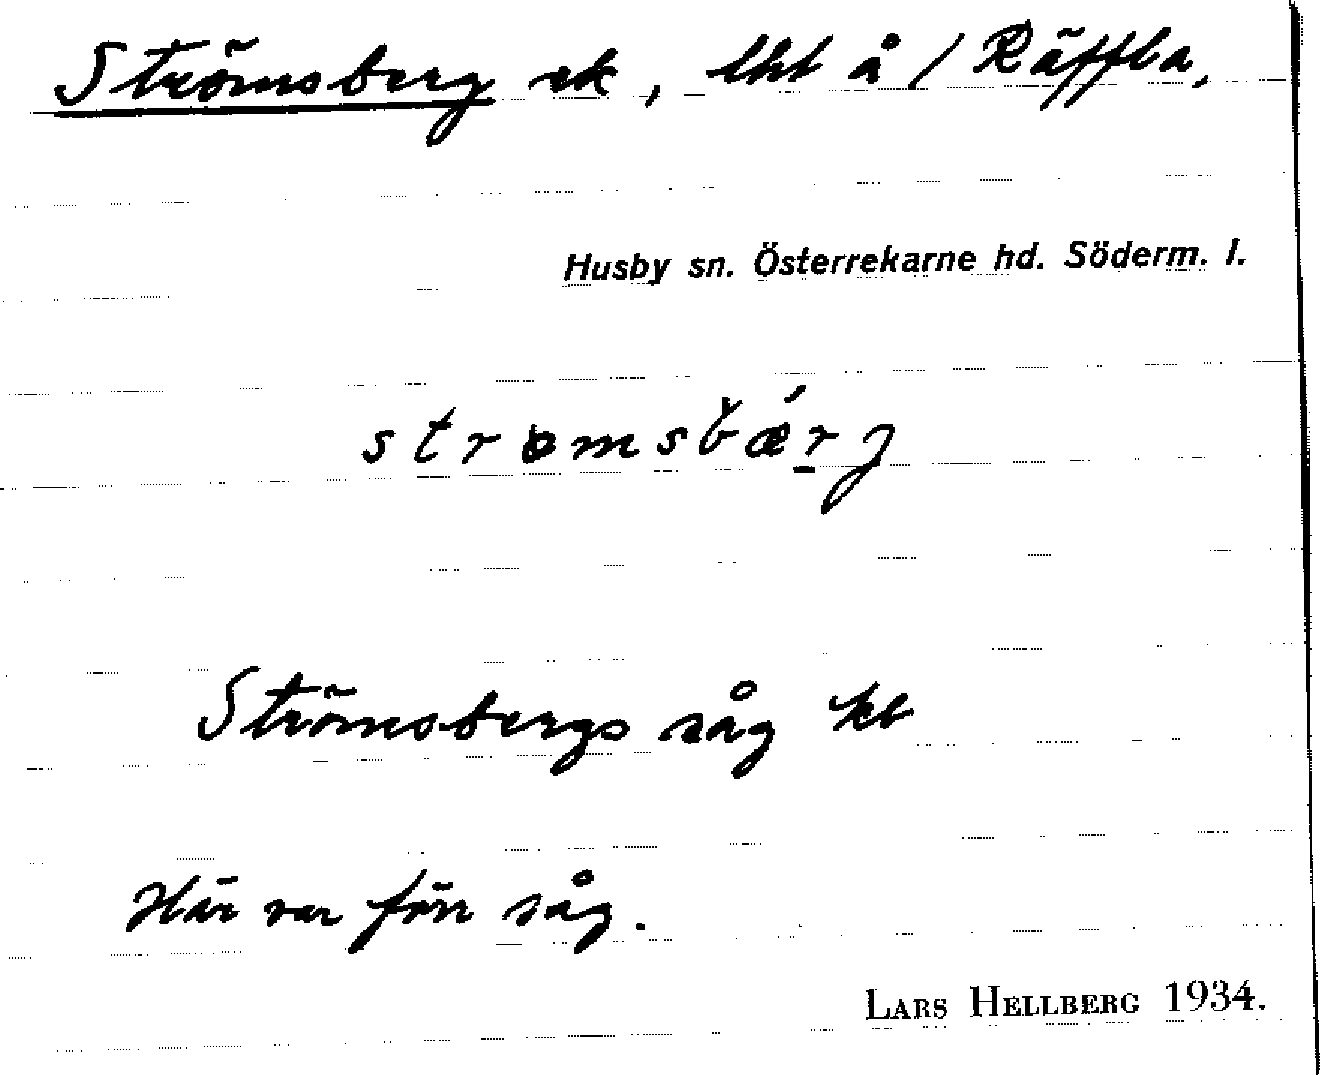 Strömsberg ek, lht å / Räffla,
Husby sn. Österrekarne hd. Söderm. l.
strömsbǽrj
Strömsbergs såg kb
Här var förr såg.
LARS HELLBERG 1934.